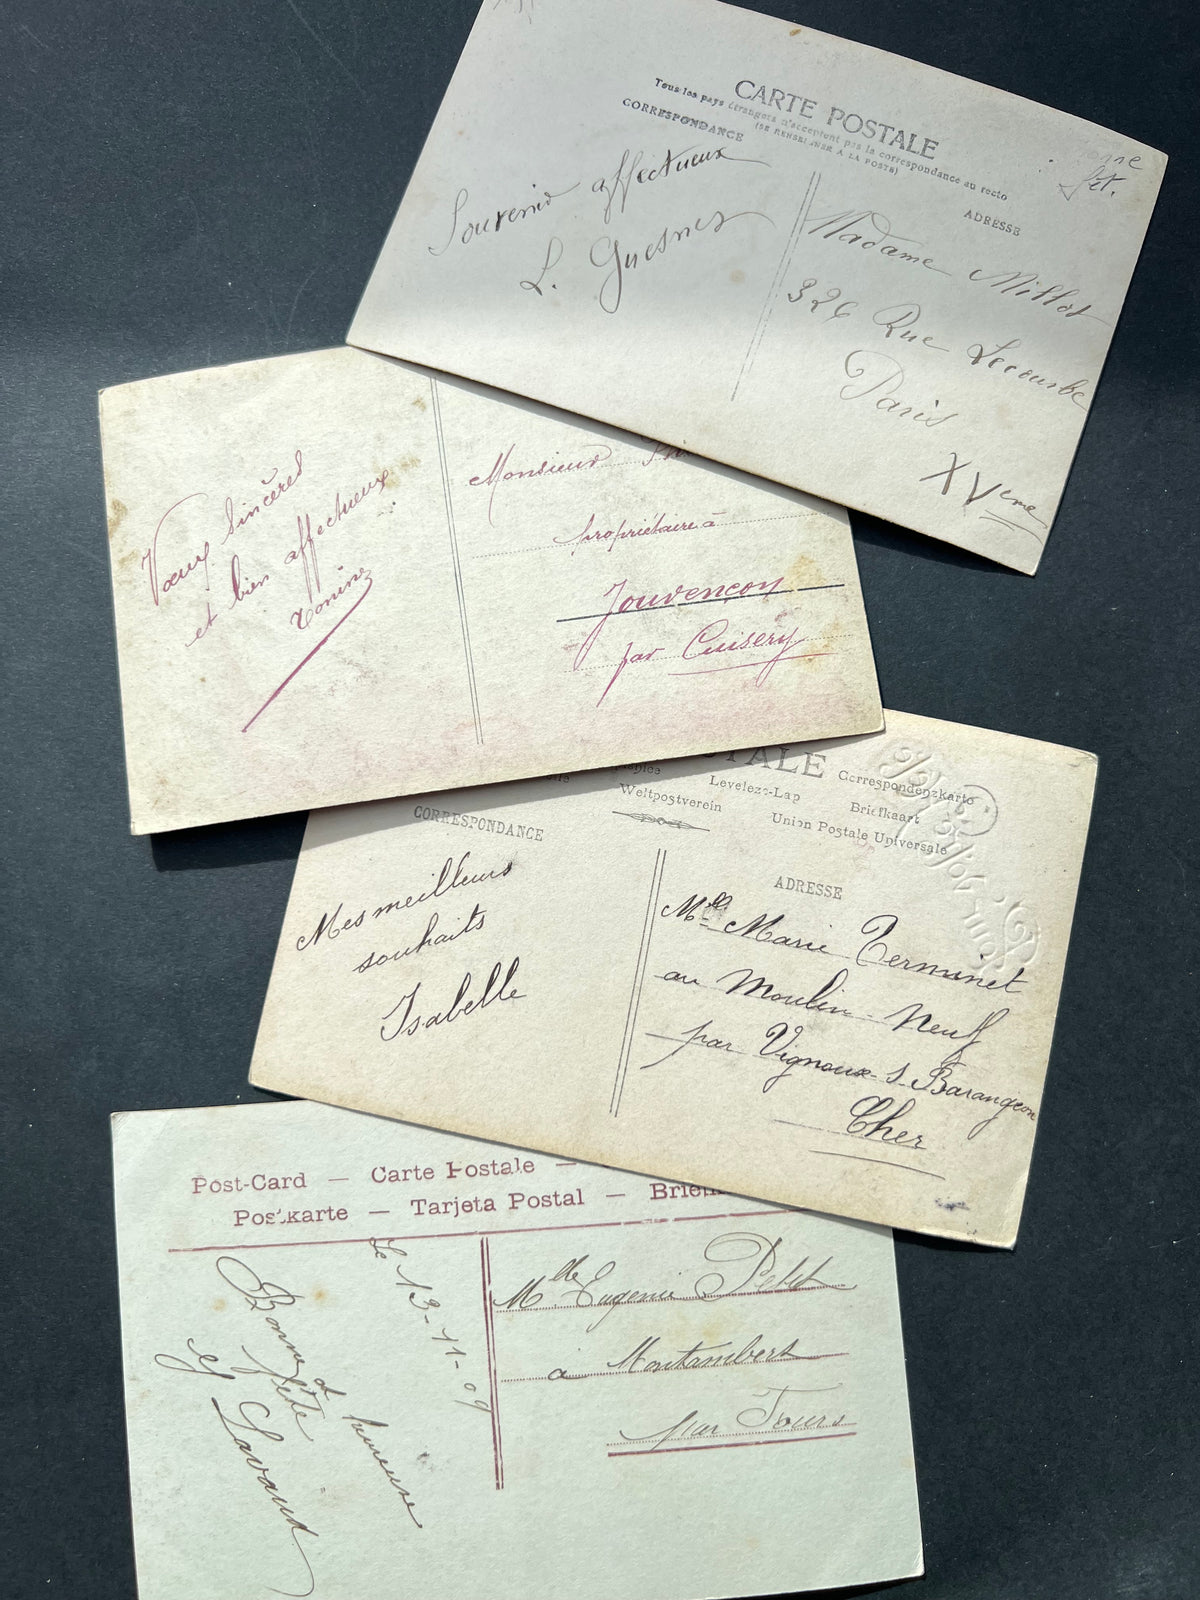 CARTE POSTALE
Tous les pays étrangers n'acceptent pas la correspondance au recto
(SE RENSEIGNER A LA POSTE)
CORRESPONDANCE
ADRESSE
Souvenir affectueux
L. Guesnes
Madame Millot
326 Rue Lecourbe
Paris
XVeme
Voeux sincères
et bien affectueux
Tonine
Monsieur
propriétaire à
Jouvençon
par Cuisery
TALE
Correspondenzkarte
Levelezo-Lap
Briefkaart
Weltpostverein
Union Postale Universale
CORRESPONDANCE
ADRESSE
Mes meilleurs
souhaits
Isabelle
Mlle Marie Terminet
au Moulin-Neuf
par Vignoux-s-Barangeon
Cher
Post-Card — Carte Postale —
Postkarte — Tarjeta Postal —
Le 13-11-09
Bonne et heureuse
fête
Lavaud
Mlle Eugenie Petit
à Montambert
par Tours